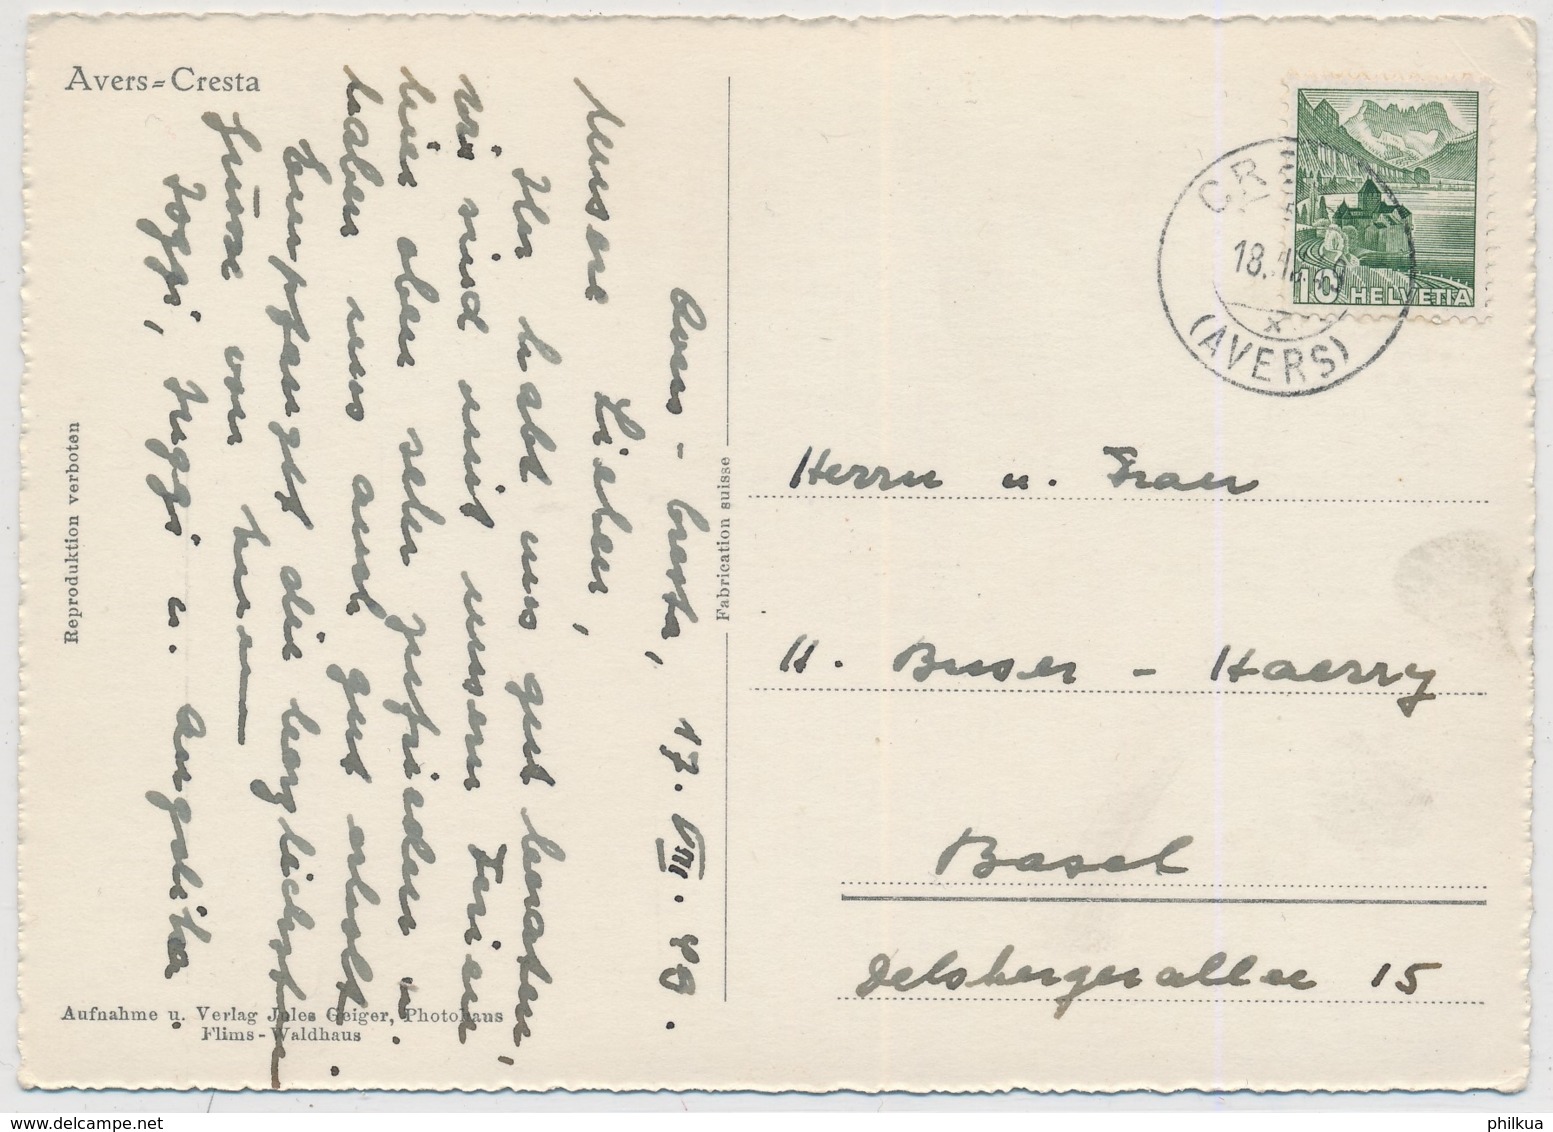 Avers-Cresta
Avers - Cresta, 17. VIII. 49.
Unsere Lieben,
Ihr habt uns gut beraten,
wir sind mit unsern Ferien
hier oben sehr zufrieden u.
haben uns auch gut erholt.
Empfangt die herzlichsten
Grüsse von Euren
Joggi, Juggi u. Angelika.
Reproduktion verboten
Aufnahme u. Verlag Jules Geiger, Photohaus
Flims-Waldhaus
Fabrication suisse
10 HELVETIA
18.
(AVERS)
Herrn u. Frau
H. Buser - Haerry
Basel
Delsbergerallee 15
philkua.com